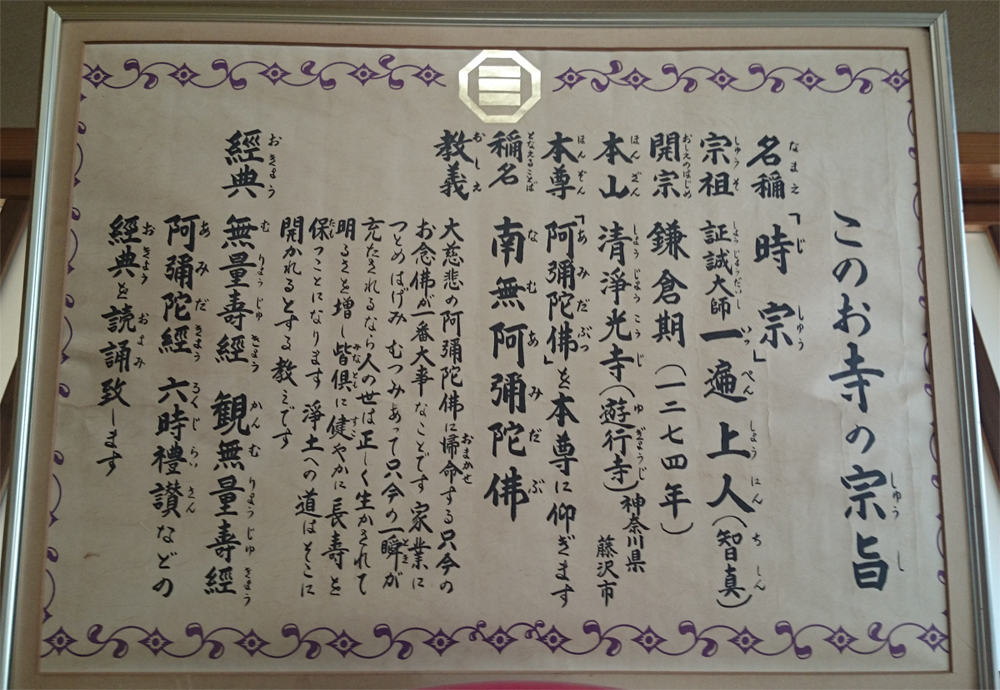 このお寺の宗旨
名稱 「時宗」
宗祖 証誠大師 一遍上人(智真)
開宗 鎌倉期(一二七四年)
本山 清淨光寺(遊行寺)神奈川県藤沢市
本尊 「阿彌陀佛」を本尊に仰ぎます
稱名 南無阿彌陀佛
教義 大慈悲の阿彌陀佛に帰命する只今の
お念佛が一番大事なことです 家業に
つとめはげみ むつみあって只今の一瞬が
充たされるなら人の世は正しく生かされて
明るさを増し 皆俱に健やかに長寿を
保つことになります 淨土への道はそこに
開かれるとする教えです
經典 無量壽經 観無量壽經
阿彌陀經 六時禮讃などの
經典を読誦致します